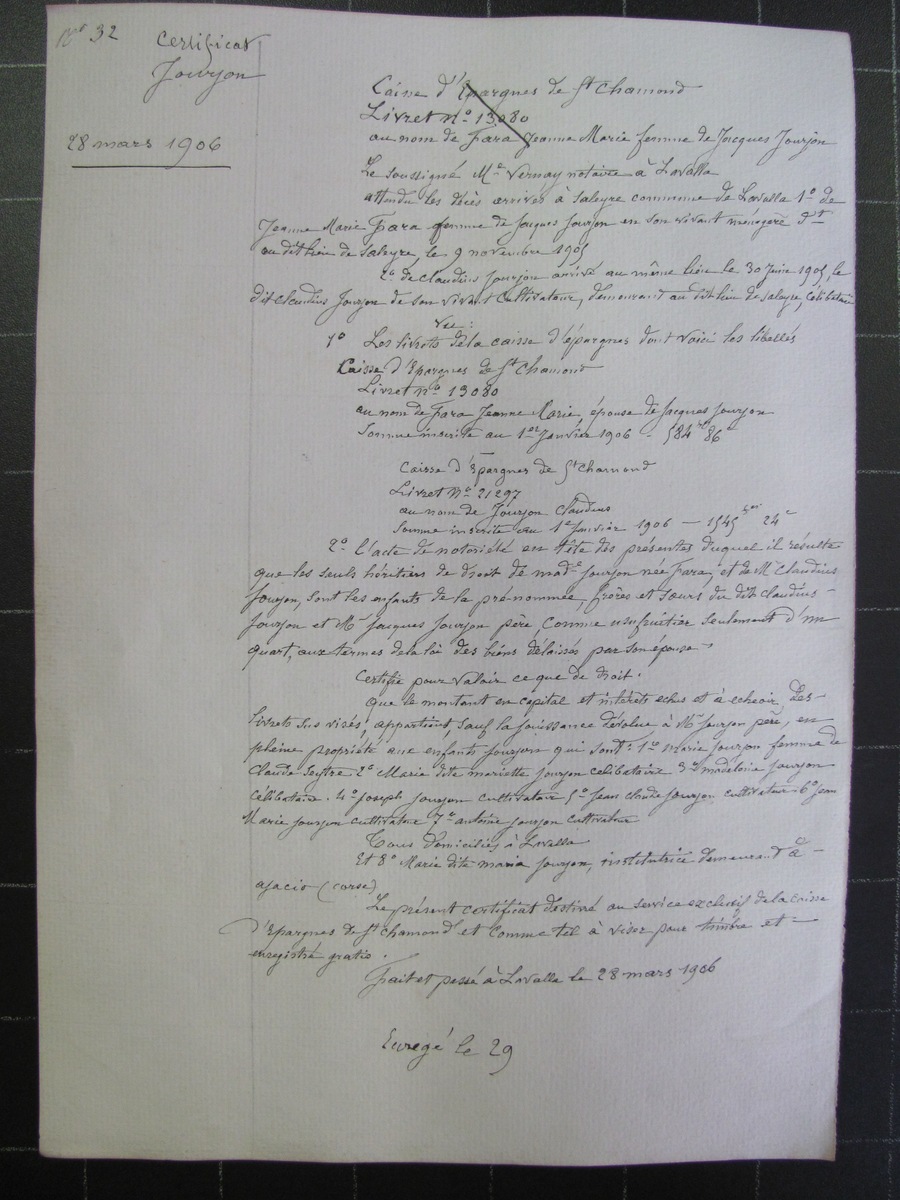 No 32
Certificat
Jourjon
28 mars 1906
Caisse d'Epargnes de St Chamond
Livret No 13080
au nom de Fara Jeanne Marie femme de Jacques Jourjon
Le soussigné Me Vernay notaire à Lavalla
attendu les décès arrivés à Saleyre commune de Lavalla 1o de
Jeanne Marie Fara femme de Jacques Jourjon en son vivant ménagère dt
au dit lieu de Saleyre, le 9 novembre 1905
2o de Claudius Jourjon arrivé au même lieu le 30 Juin 1905, le
dit Claudius Jourjon de son vivant cultivateur, demeurant au dit lieu de Saleyre, célibataire
Vu :
1o Les livrets de la caisse d'épargnes dont voici les libellés
Caisse d'Epargnes de St Chamond
Livret no 13080
au nom de Fara Jeanne Marie, épouse de Jacques Jourjon
Somme inscrite au 1er Janvier 1906 - 584 86c
Caisse d'Epargnes de St Chamond
Livret No 21297
au nom de Jourjon Claudius
Somme inscrite au 1er Janvier 1906 — 1545 24c
2o L'acte de notoriété en tête des présentes duquel il résulte
que les seuls héritiers de droit de made Jourjon née Fara, et de Mr Claudius
Jourjon, sont les enfants de la prénommée, frères et sœurs du dit Claudius
Jourjon et Mr Jacques Jourjon père, comme usufruitier seulement d'un
quart, aux termes de la loi des biens délaissés par son épouse
Certifie pour valoir ce que de droit.
que le montant en capital et intérêts echus et à echeoir, des
livrets sus visés, appartient, sauf la jouissance dévolue à Mr Jourjon père, en
pleine propriété aux enfants Jourjon qui sont: 1o Marie Jourjon femme de
Claude Seytre 2o Marie dite mariette Jourjon célibataire 3o madeleine Jourjon
célibataire. 4o Joseph Jourjon cultivateur 5o Jean Claude Jourjon cultivateur 6o Jean
Marie Jourjon cultivateur 7o antoine Jourjon cultivateur
Tous domiciliés à Lavalla
Et 8o Marie dite maria Jourjon, institutrice demeurant à
ajacio (corse)
Le présent certificat destiné au service exclusif de la caisse
d'Epargnes de St Chamond et comme tel à viser pour timbre et
enregistré gratis.
Fait et passé à Lavalla le 28 mars 1906
Enregé le 29